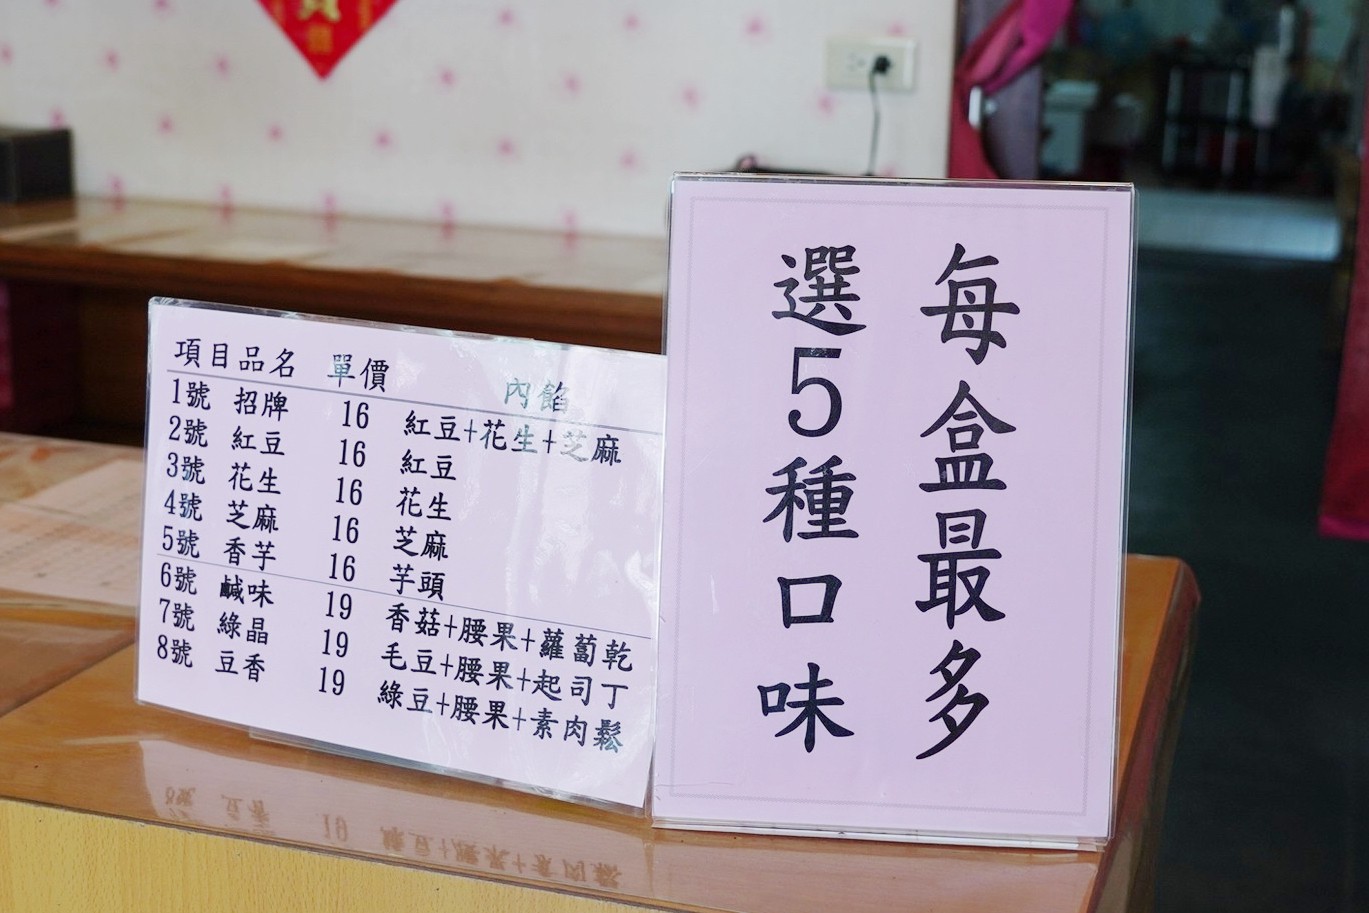 項目品名 單價 內餡
1號 招牌 16 紅豆+花生+芝麻
2號 紅豆 16 紅豆
3號 花生 16 花生
4號 芝麻 16 芝麻
5號 香芋 16 芋頭
6號 鹹味 19 香菇+腰果+蘿蔔乾
7號 綠晶 19 毛豆+腰果+起司丁
8號 豆香 19 綠豆+腰果+素肉鬆
每盒最多
選5種口味